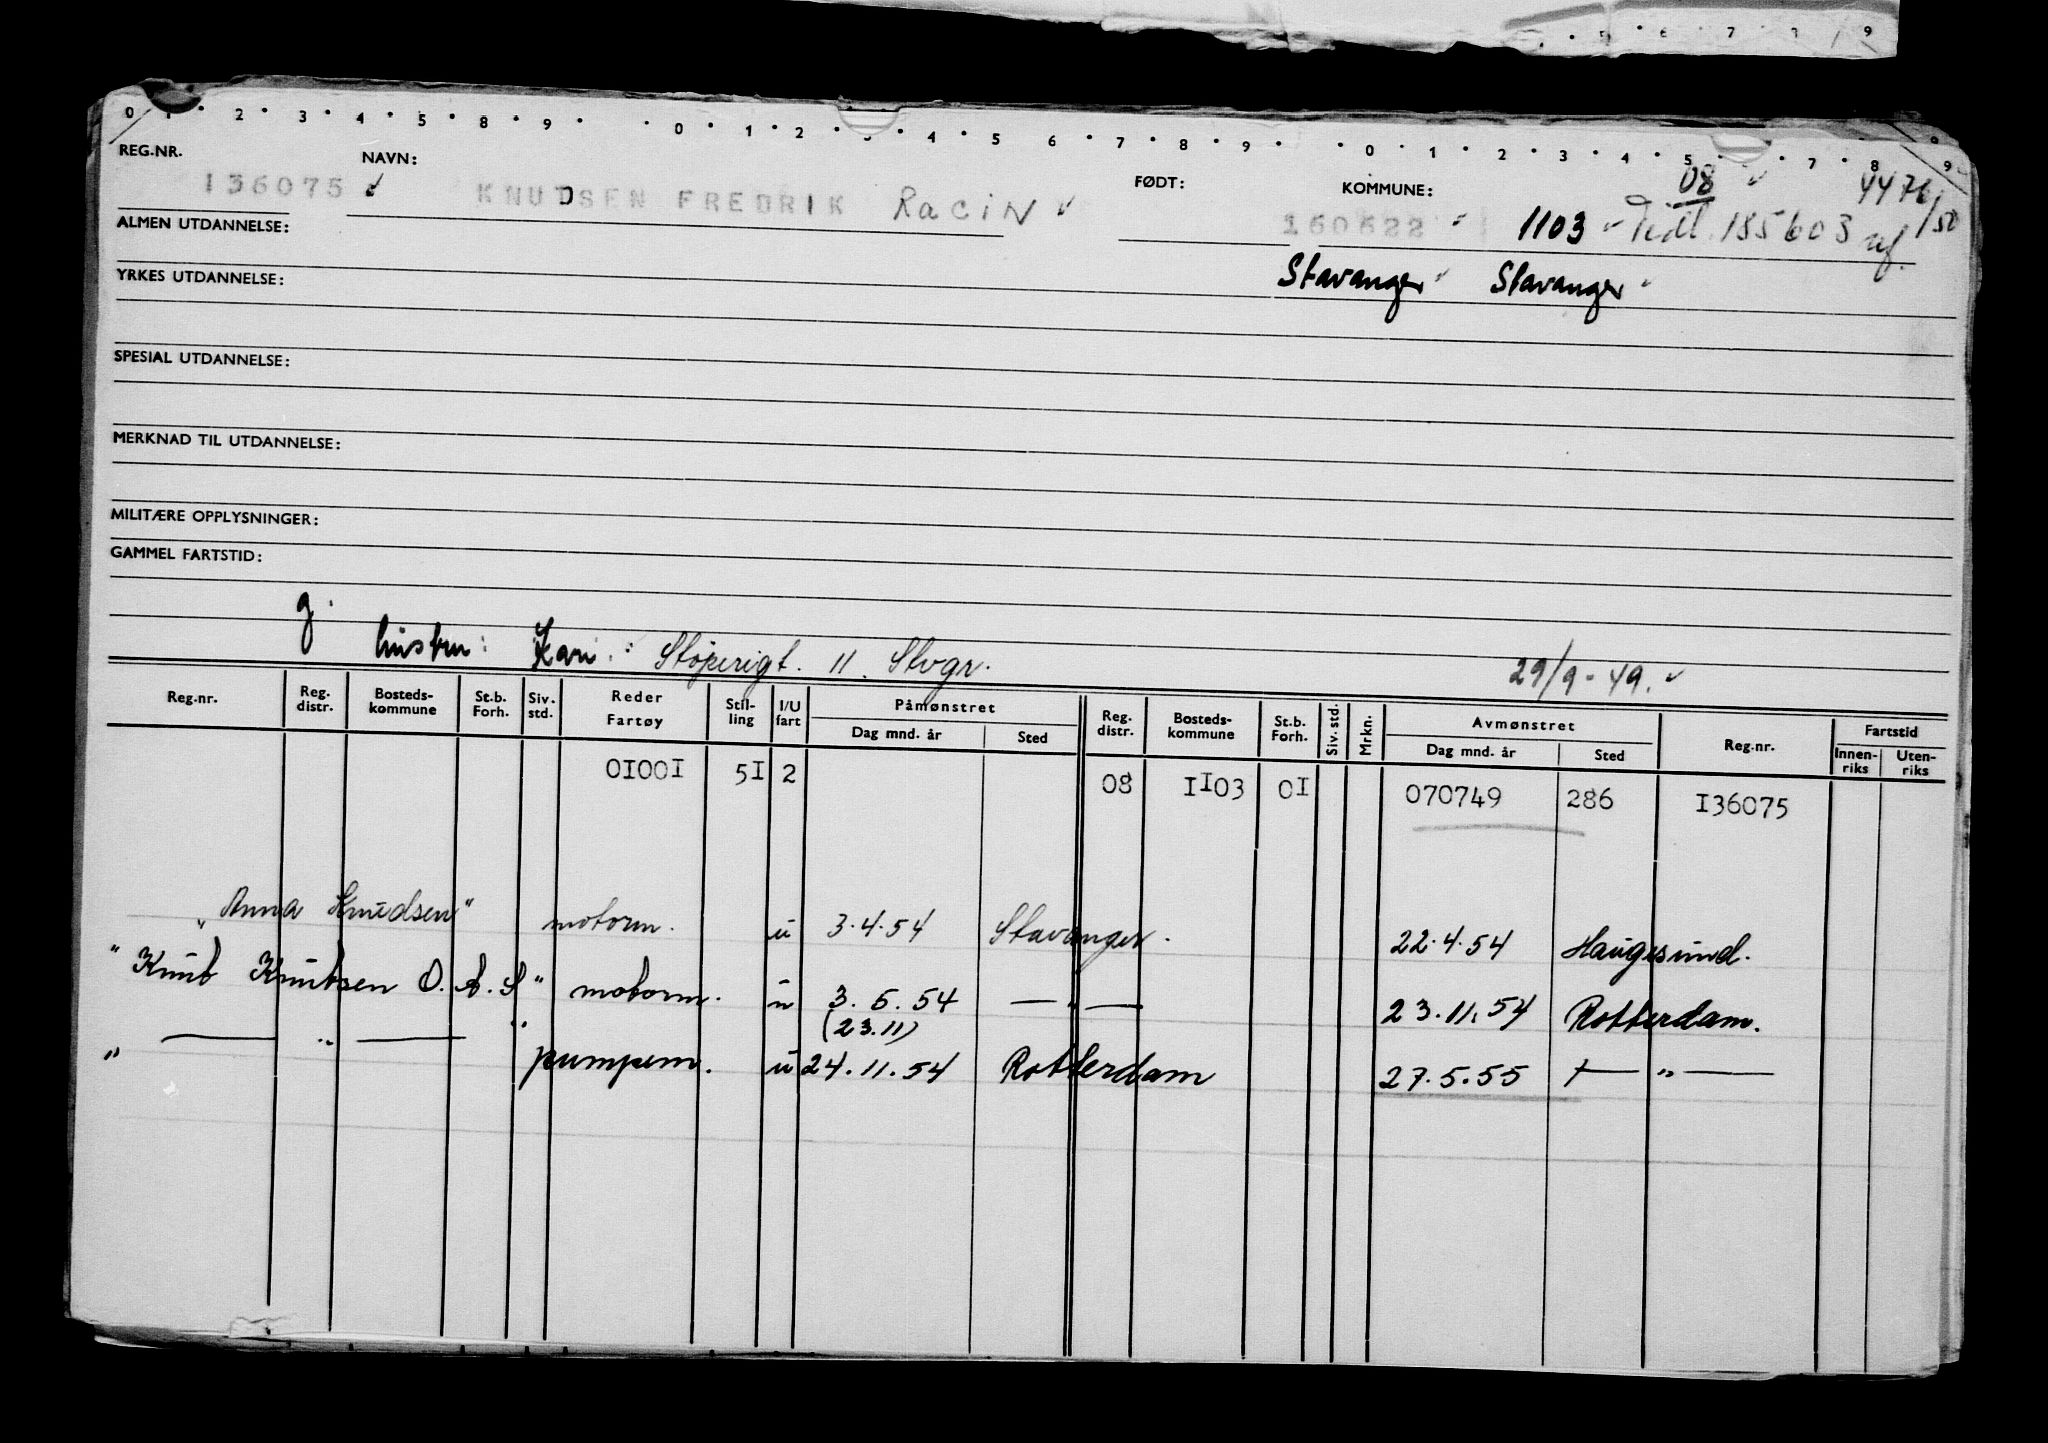 5 · 6 · 7 · 8 9
0 1 · 2 · 3 · 4 · 5 · 8 · 9 · · 0 · 1 · 2 · 3 · 4 · 5 6 · 7 · 8 · 9 · · 0 · 1 · 2 · 3 · 4 · 5 · · 7 · 8 · 9
REG.NR. NAVN: FØDT: KOMMUNE: 08 4476/50
136075 KNUDSEN FREDRIK RaciN 160622 1103 Tidl. 185603
ALMEN UTDANNELSE:
YRKES UTDANNELSE: Stavanger Stavanger
SPESIAL UTDANNELSE:
MERKNAD TIL UTDANNELSE:
MILITÆRE OPPLYSNINGER:
GAMMEL FARTSTID:
g.
hustru: Kari: Støperigt. 11. Stvgr. 29/9-49.
Reg.nr. Reg. distr. Bosteds-kommune St.b. Forh. Siv. std. Reder Fartøy Stil-ling I/U fart Påmønstret Dag mnd. år Sted Reg. distr. Bosteds-kommune St.b. Forh. Siv. std. Mrkn. Avmønstret Dag mnd. år Sted Reg.nr. Fartstid Innen-riks Uten-riks
01001 51 2 08 1103 01 070749 286 136075
"Anna Knudsen" motorm. u 3.4.54 Stavanger. 22.4.54 Haugesund.
"Knut Knutsen O.A.S" motorm. u 3.6.54 — " — 23.11.54 Rotterdam.
(23.11)
" — " — " pumpem. u 24.11.54 Rotterdam 27.5.55 — " —